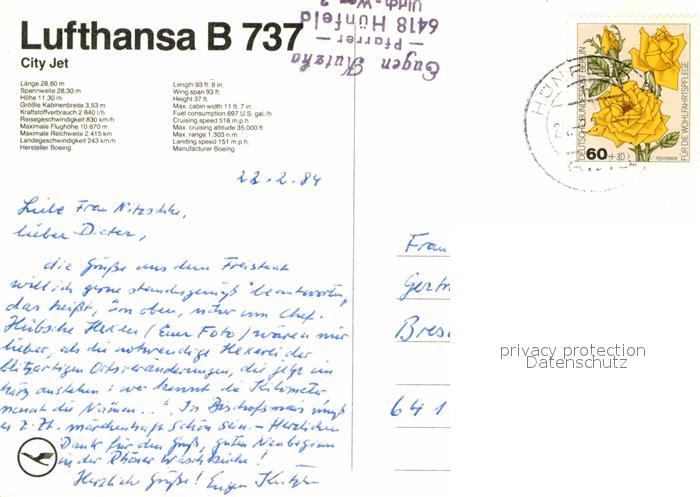 Lufthansa B 737
City Jet
Länge 28,60 m
Spannweite 28,30 m
Höhe 11,30 m
Größte Kabinenbreite 3,53 m
Kraftstoffverbrauch 2 640 l/h
Reisegeschwindigkeit 830 km/h
Maximale Flughöhe 10.670 m
Maximale Reichweite 2.415 km
Landegeschwindigkeit 243 km/h
Hersteller Boeing
Length 93 ft. 8 in.
Wing span 93 ft.
Height 37 ft.
Max. cabin width 11 ft. 7 in.
Fuel consumption 697 U.S. gal./h.
Cruising speed 516 m.p.h.
Max. cruising altitude 35,000 ft
Max. range 1.303 n.m.
Landing speed 151 m.p.h.
Manufacturer Boeing
Eugen
– Pfarrer –
6418 Hünfeld
DEUTSCHE BUNDESPOST BERLIN
FÜR DIE WOHLFAHRTSPFLEGE
60 +30
HÜNF
22.2.84
Liebe Frau Nitzschke,
lieber Dieter,
die Grüße aus dem Freistaat
will ich gerne standesgemäß beantworten,
das heißt, von oben, vom Chef.
Hübsche Hexen (Euer Foto) wären mir
lieber, als die notwendige Hexerei der
blitzartigen Ortsveränderungen, die jetzt im
anstehen: wer kennt die Kilometer
nennt die Namen..." In Bischofsmais muß
es z. Zt. märchenhaft schön sein. – Herzlichen
Dank für den Gruß, guten Neubeginn
in der Rhöner Waschküche!
Herzliche Grüße! Eugen
Frau
Gertr
Bres
641
privacy protection
Datenschutz